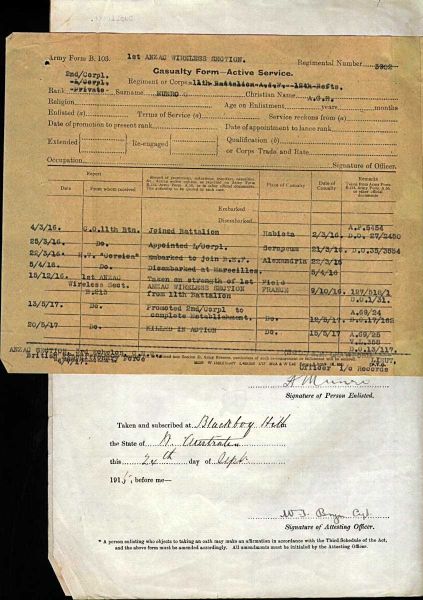 1st ANZAC WIRELESS SECTION.
Army Form B. 103.
Regimental Number 3902
Casualty Form—Active Service.
2nd/Corpl.
L/Corpl.
Regiment or Corps 11th Battalion A.I.F. 12th Refts.
Rank Private Surname MUNRO Christian Name A.G.H.
Religion Age on Enlistment years months
Enlisted (a) Terms of Service (a) Service reckons from (a)
Date of promotion to present rank Date of appointment to lance rank
Extended Re-engaged Qualification (b)
or Corps Trade and Rate
Occupation Signature of Officer.
Report
Date From whom received
Place of Casualty
Date of Casualty
Remarks
Embarked
Disembarked
4/3/16. C.O.11th Btn. Joined Battalion Habieta 2/3/16. A.F.5454
D.O. 27/2450
25/3/16. Do. Appointed L/Corpl. Serapeum 21/3/16. D.O.35/3584
22/3/16. H.T. "Corsican" Embarked to join B.E.F. Alexandria 22/3/16
5/4/16. Do. Disembarked at Marseilles. 5/4/16
15/12/16. 1st ANZAC Taken on strength of 1st Field
Wireless Sect. ANZAC WIRELESS SECTION FRANCE 9/10/16. 127/518/1
B.213 from 11th Battalion D.O.1/31.
13/5/17. Do. Promoted 2nd/Corpl to Do. 12/5/17. A.69/24
complete Establishment. D.O.17/162
20/5/17 Do. KILLED IN ACTION Do. 15/5/17 A.69/25
V.L.358
D.O.13/117.
LIEUT.
Officer i/c Records
Munro
Signature of Person Enlisted.
Taken and subscribed at Blackboy Hill
the State of W. Australia
this 24th day of Sept.
1915, before me—
Signature of Attesting Officer.
* A person enlisting who objects to taking an oath may make an affirmation in accordance with the Third Schedule of the Act,
and the above form must be amended accordingly. All amendments must be initialed by the Attesting Officer.